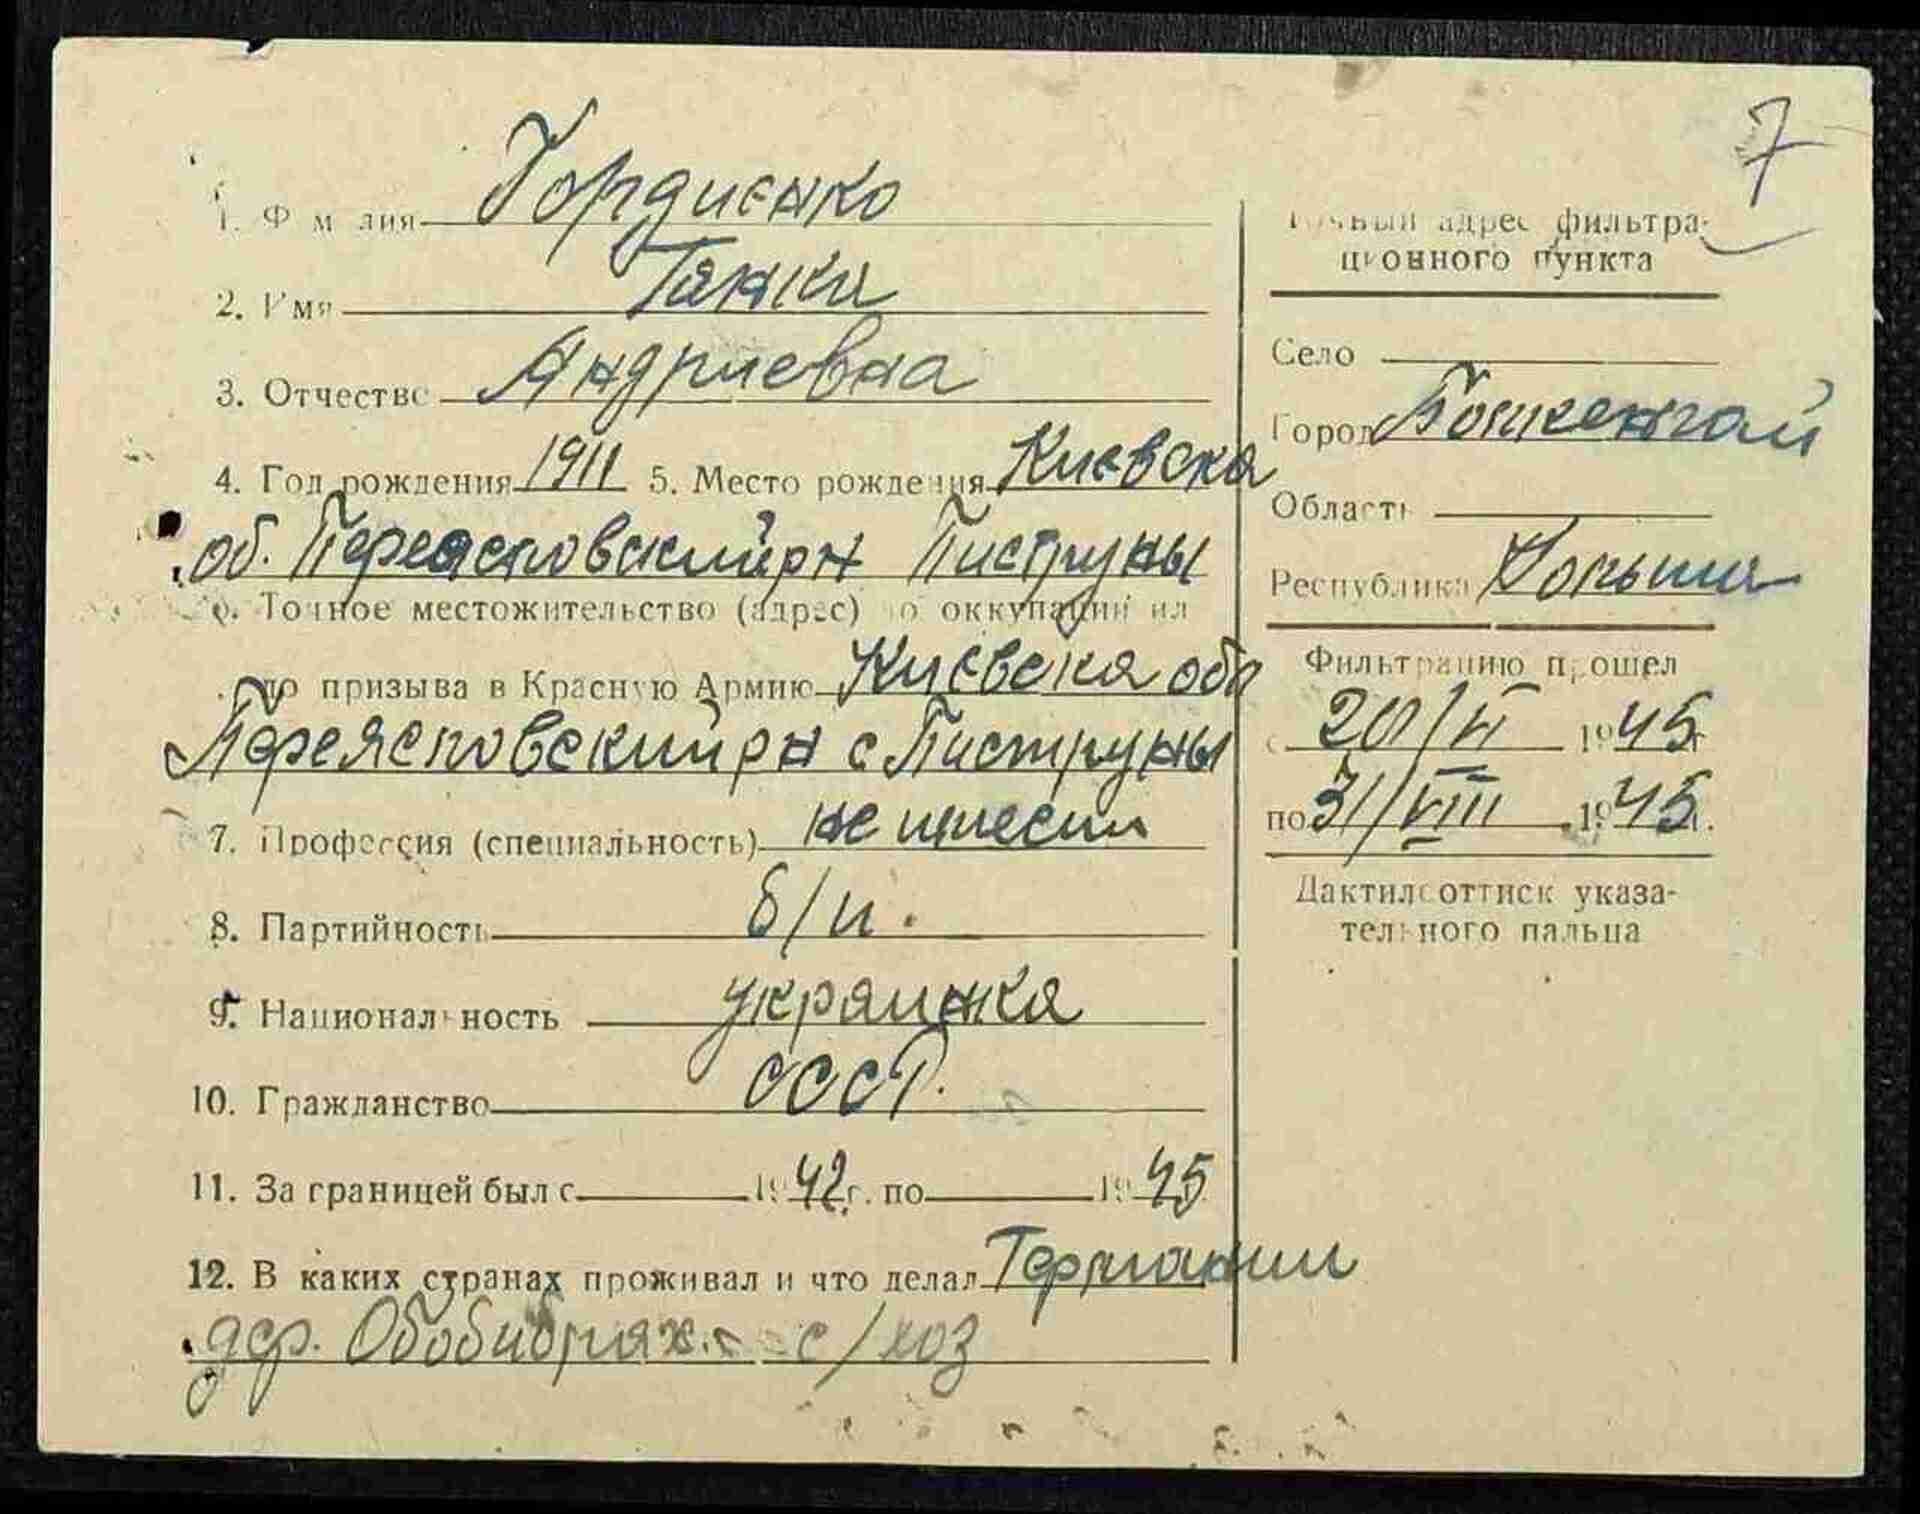 7
1. Фамилия Гордиенко
2. Имя Ганна
3. Отчество Андриевна
4. Год рождения 1911 5. Место рождения Киевска
об. Переясловский рн Пиструны
6. Точное местожительство (адрес) до оккупации ил
до призыва в Красную Армию Киевска обл
Переясловский рн с Пиструны
7. Профессия (специальность) не имеет
8. Партийность б/п.
9. Национальность украинка
10. Гражданство СССР.
11. За границей был с 1942 г. по 1945
12. В каких странах проживал и что делал Германии
дер. с/хоз
Точный адрес фильтра-
ционного пункта
Село
Город
Область
Республика Польша
Фильтрацию прошел
с 20/VI 1945 г
по 31/VIII 1945 г.
Дактилооттиск указа-
тельного пальца